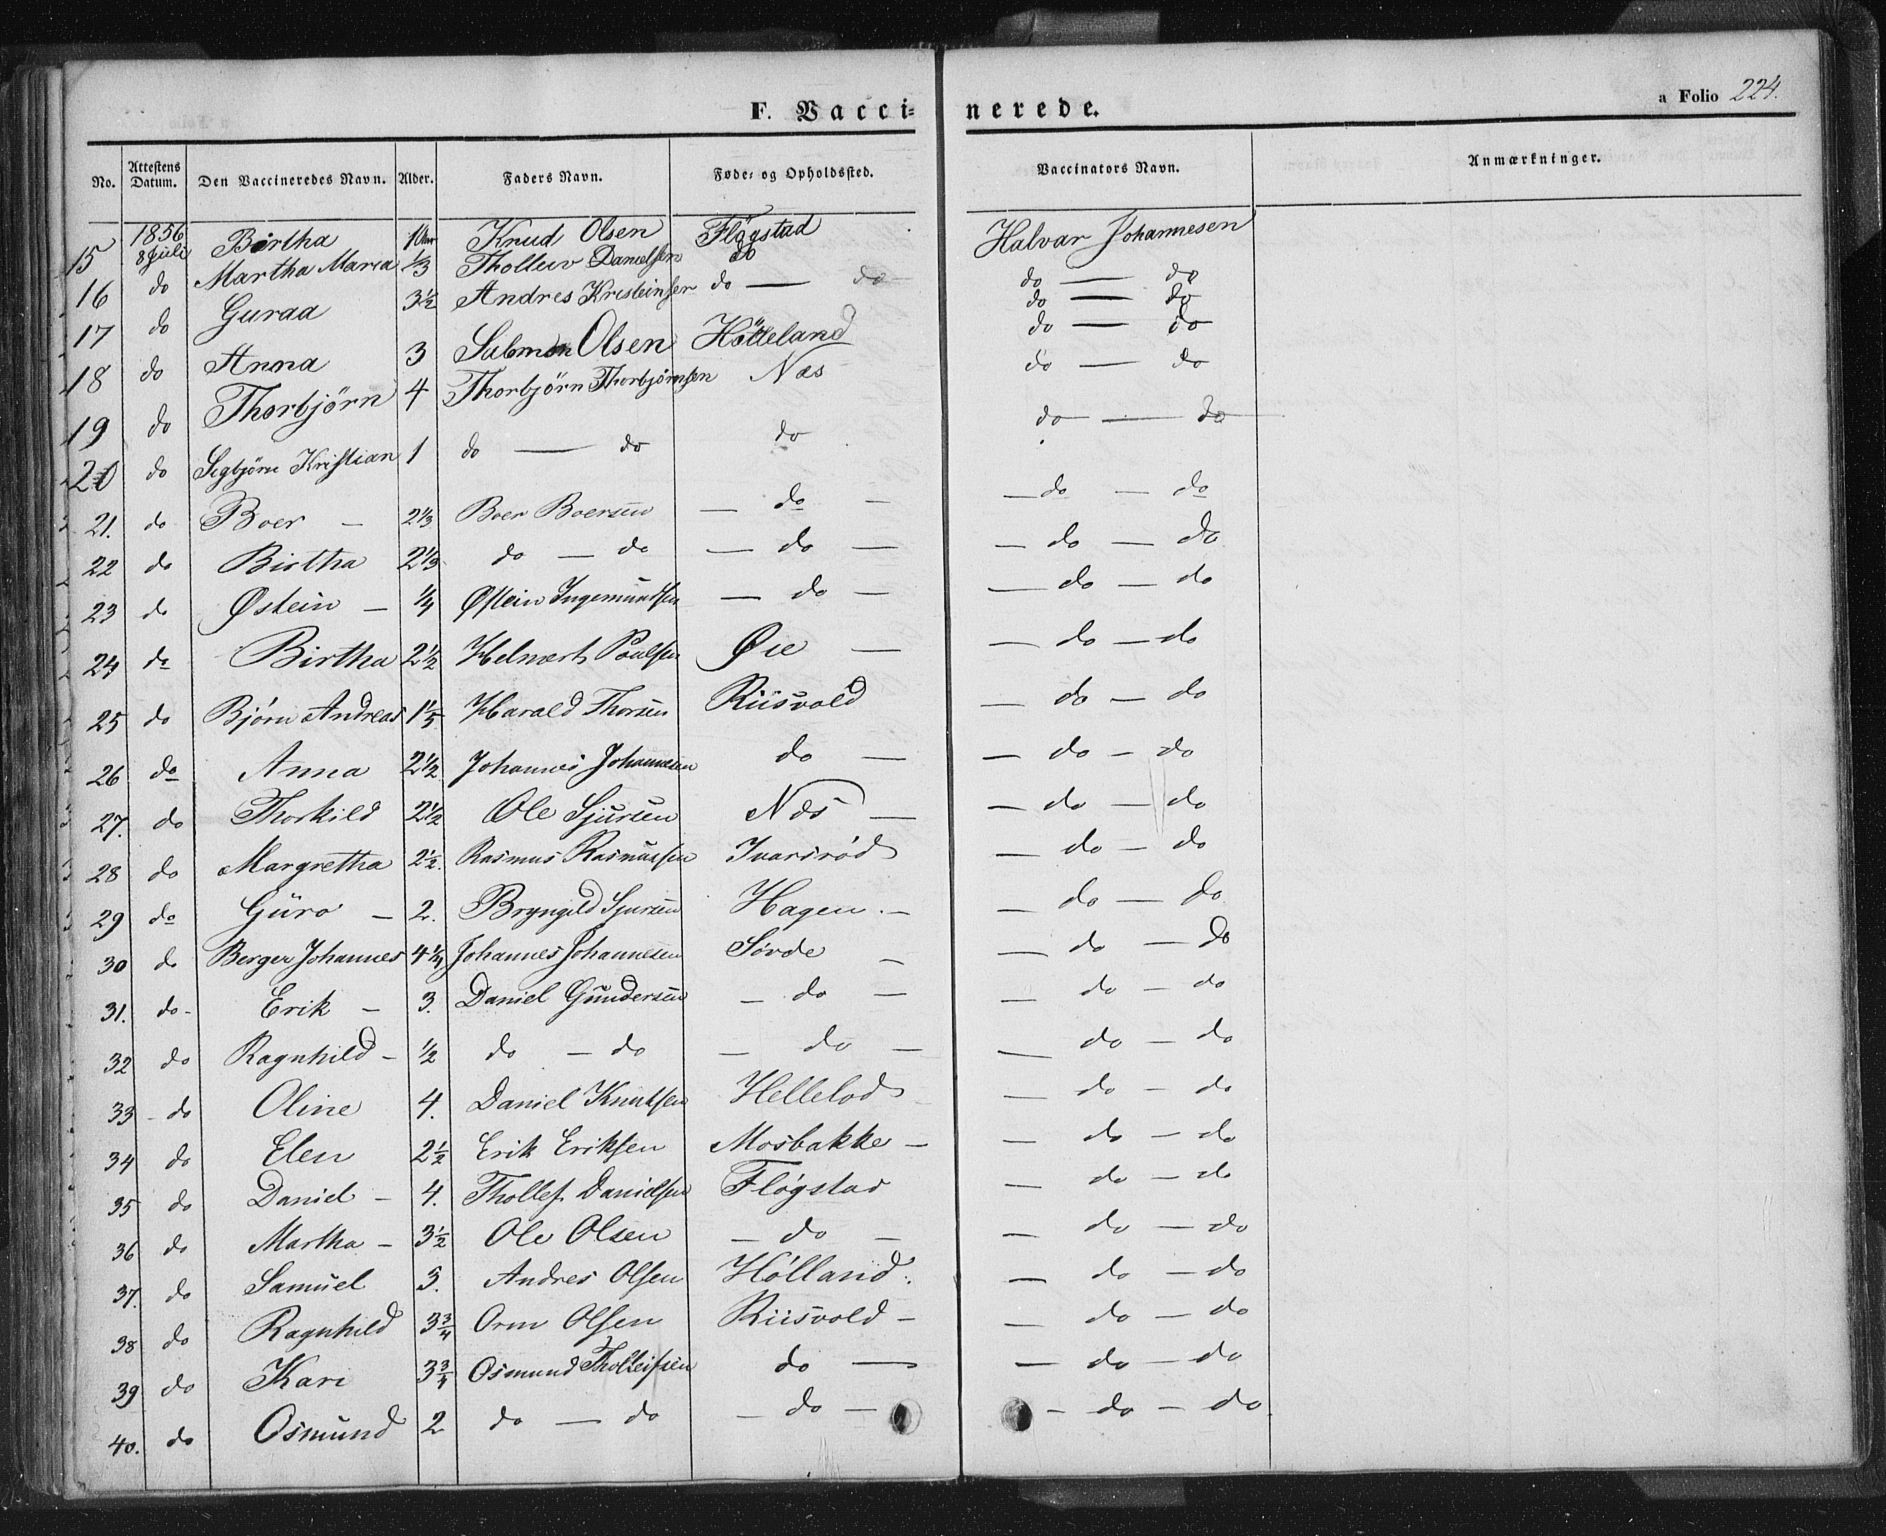 F. Vacci- nerede. a Folio 224.
No. Attestens Datum. Den Vaccineredes Navn. Alder. Faders Navn. Føde- og Opholdssted. Vaccinators Navn. Anmærkninger.
1856
15 8 Juli Birtha Knud Olsen Flögstad Halvar Johannesen
16 do Martha Maria 1/3 Thollev Danielsen do do — do
17 do Guraa 3½ Andres Kristeinsen do — do do — do
18 do Anna 3 Salomon Olsen Hölleland do — do
19 do Thorbjörn 4 Thorbjörn Thorbjörnsen Næs do — do
20 do Segbjörn Kristian 1 do — do do do — do
21. do Boer — 2⅓ Boer Boersen — do — — do — do
22 do Birtha 2⅓ do — do — do — — do — do
23 do Østein — ¼ Østein Ingemundsen — do — — do — do
24 do Birtha 2½ Helmert Paulsen Øie — — do — do
25 do Bjørn Andreas 1⅕ Harald Thorsen Riisvold — do — do
26 do Anna 2½ Johannes Johannesen do — — do — do
27. do Thorkild 2½ Ole Sjursen Næs — — do — do
28 do Margretha 2½. Rasmus Rasmussen Ivarsrød — do — do
29 do Guro — 2. Bryngild Sjursen Hagen. — — do — do
30 do Berger Johannes 4¼ Johannes Johannesen Søvde — — do — do
31. do - Erik — 3. Daniel Gundersen — do — — do — do
32 do Ragnhild — ½ do — do — do — — do — do
33 - do Oline 4. Daniel Knutsen Hellelod — do — do
34 do Elen 2½ Erik Eriksen Mosbakke — — do — do
35 do Daniel — 4. Thollef Danielsen Fløgstad — do — do
36 do Martha — 3½ Ole Olsen — do — — do — do
37. do Samuel 3. Andres Olsen Hølland. — do — do
38 do Ragnhild 3¾ Orm Olsen Riisvold — — do — do
39 do Kari 3¾ Osmund Tholleifsen do — — do — do
40. do Osmund 2 do — do — do — — do — do